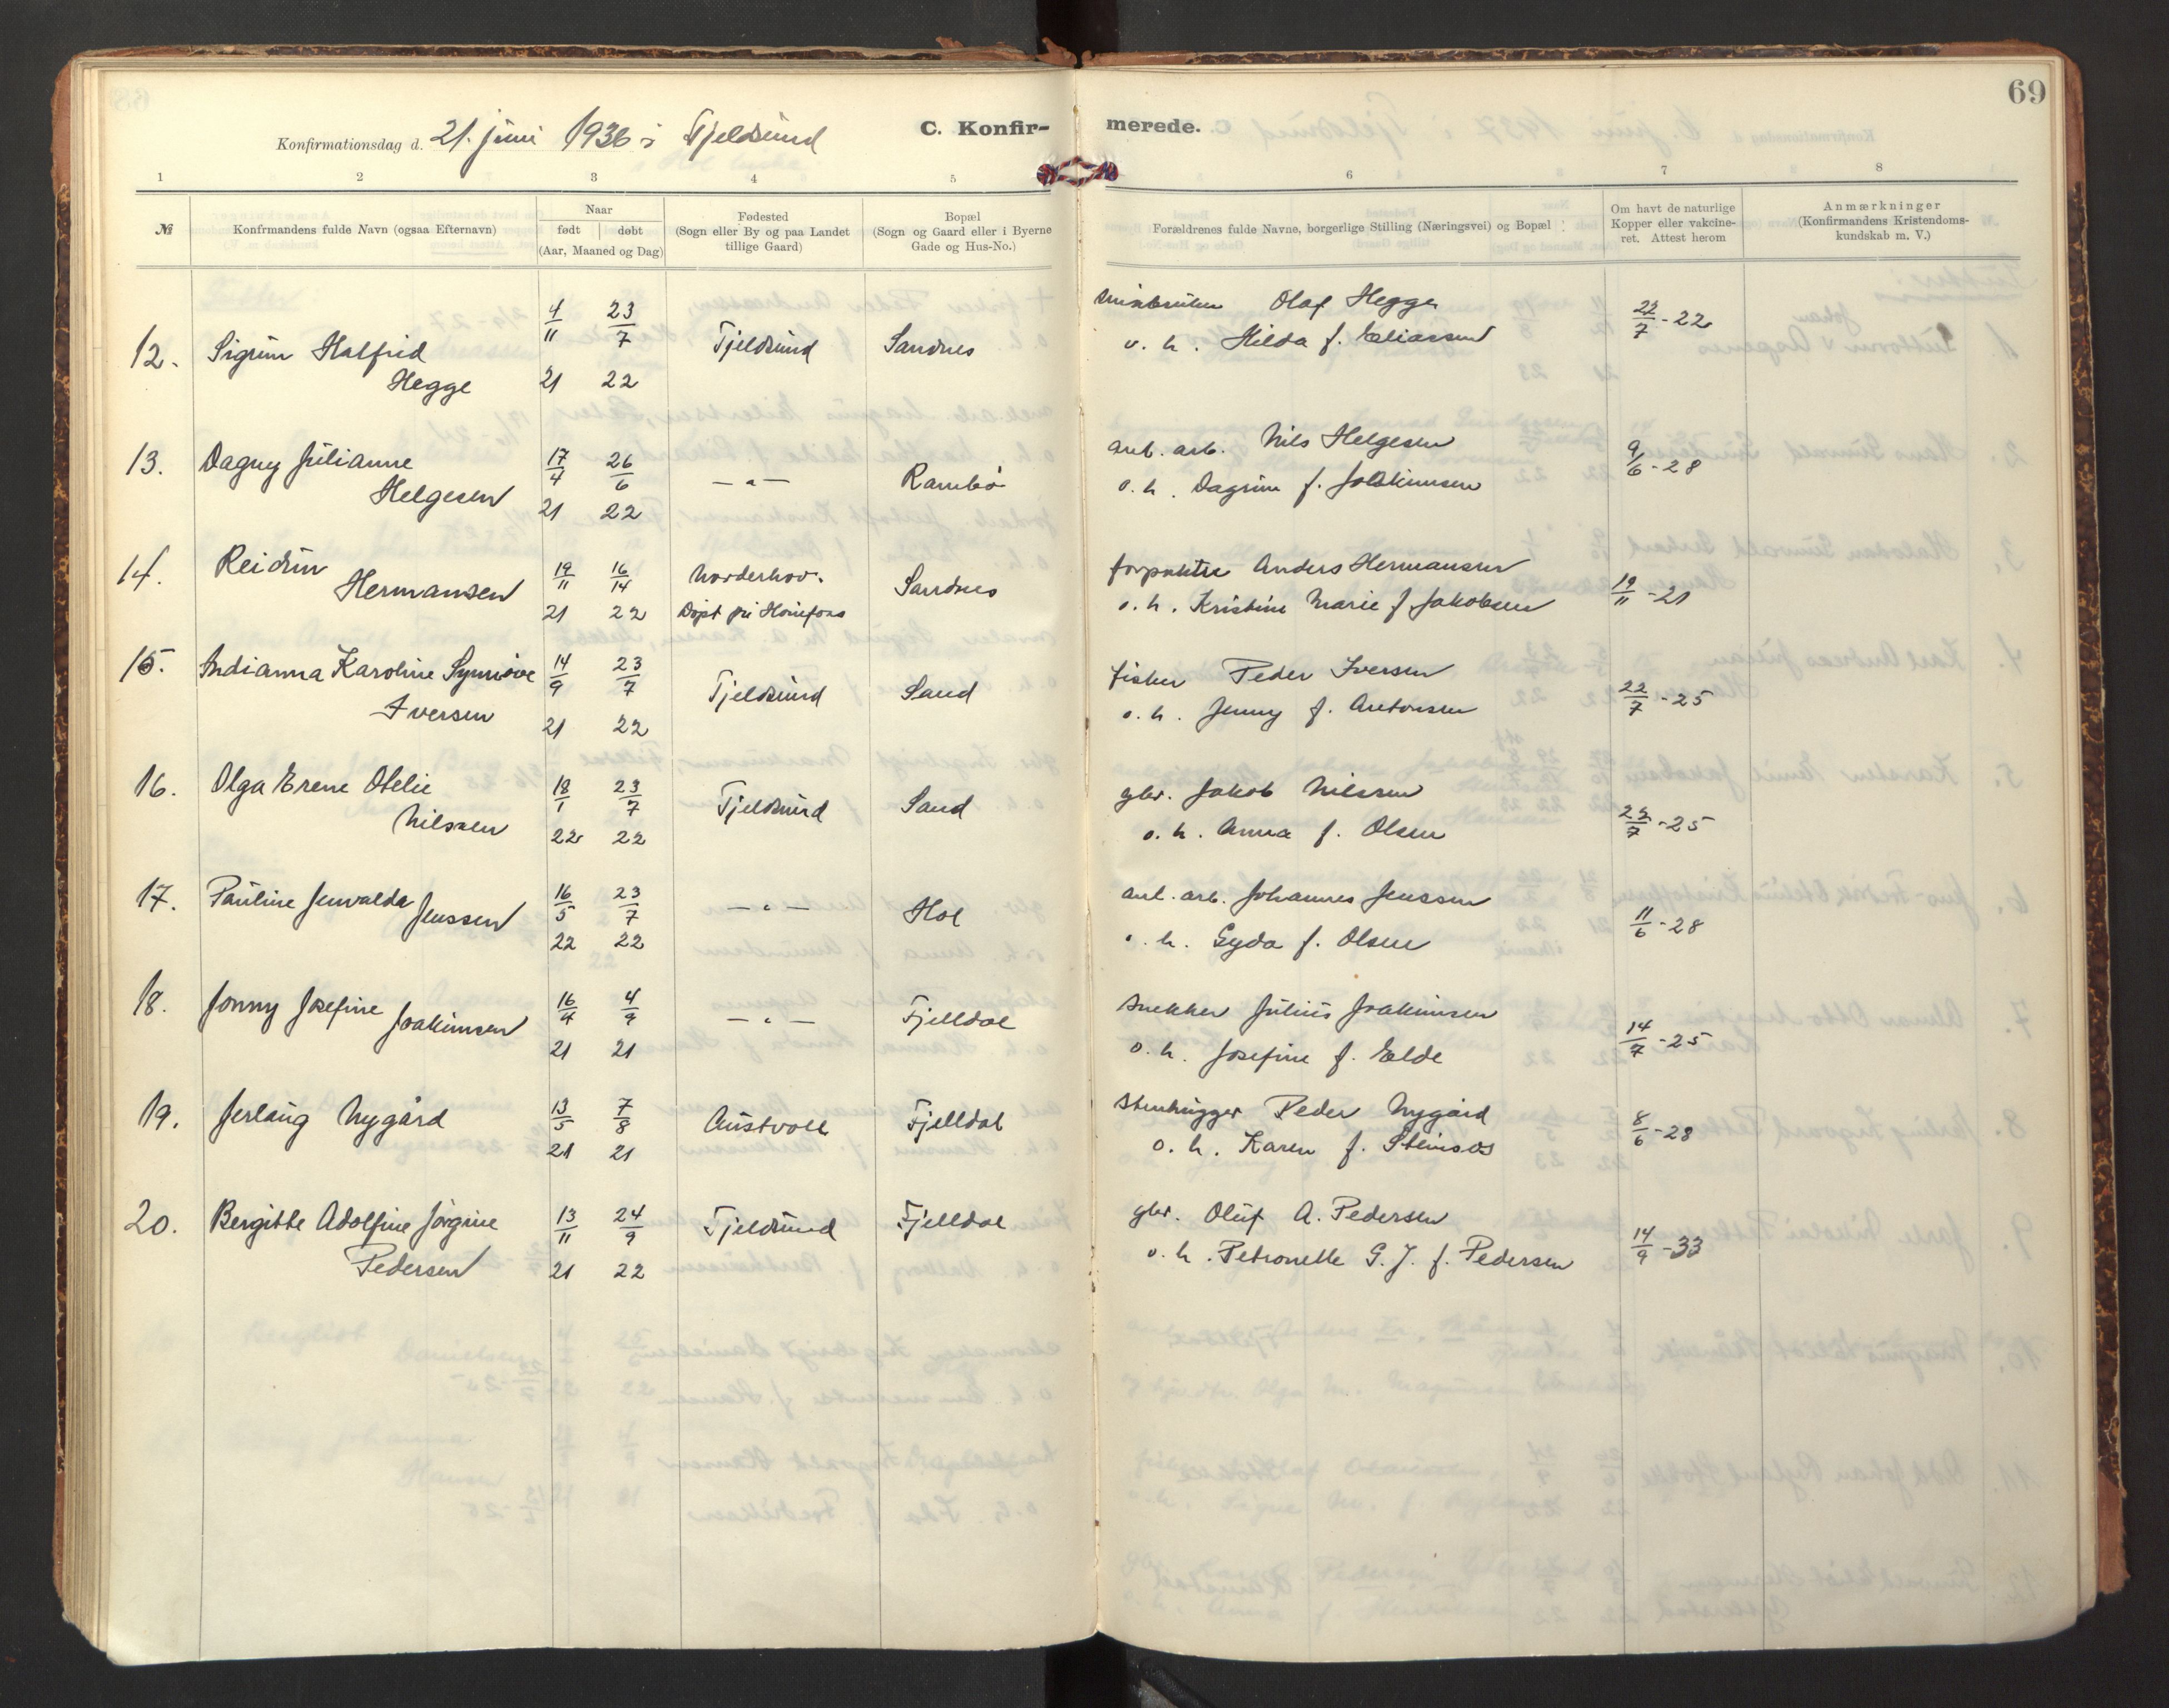 69
Konfirmationsdag d. 21. juni 1936 i Fjeldsund
C. Konfirmerede.
1 2 3 4 5 6 7 8
№
Konfirmandens fulde Navn (ogsaa Efternavn)
Naar
født døbt
(Aar, Maaned og Dag)
Fødested
(Sogn eller By og paa Landet
tillige Gaard)
Bopæl
(Sogn og Gaard eller i Byerne
Gade og Hus-No.)
Forældrenes fulde Navne, borgerlige Stilling (Næringsvei) og Bopæl
Om havt de naturlige
Kopper eller vakcine-
ret. Attest herom
Anmærkninger
(Konfirmandens Kristendoms-
kundskab m. V.)
12. Sigrun Halfrid Hegge 4/11 21 23/7 22 Fjeldsund Sandnes
Olaf Hegge
o. h. Hilda f. Eliassen 22/7-22
13. Dagny Julianne Helgesen 17/4 21 26/6 22 —〃— Rambö
anl. arb. Nils Helgesen
o. h. Dagrun f. Joakimsen 9/6-28
14. Reidun Hermansen 19/11 21 16/14 22 Norderhov. Döpt på Hönefoss Sandnes
forpakter Anders Hermansen
o. h. Kristine Marie f. Jakobsen 19/11-21
15. Indianna Karoline Synnöve Iversen 14/9 21 23/7 22 Fjeldsund Sand
fisker Peder Iversen
o. h. Jenny f. Antonsen 22/7-25
16. Olga Erene Otelie Nilssen 18/1 22 23/7 22 Fjeldsund Sand
gbr. Jakob Nilssen
o. h. Anna f. Olsen 22/7-25
17. Pauline Jenvalda Jenssen 16/5 22 23/7 22 —〃— Hol
anl. arb. Johannes Jenssen
o. h. Gyda f. Olsen 11/6-28
18. Jonny Josefine Joakimsen 16/4 21 4/9 21 —〃— Fjelldal
snekker Julius Joakimsen
o. h. Josefine f. Elde 14/7-25
19. Jerlaug Nygård 13/5 21 7/8 21 Austvoll Fjelldal
stenhugger Peder Nygård
o. h. Karen f. Steinsøs 8/6-28
20. Bergitte Adolfine Jørgine Pedersen 13/11 21 24/9 22 Fjeldsund Fjelldal
gbr. Oluf A. Pedersen
o. h. Petronelle G. J. f. Pedersen 14/9-33